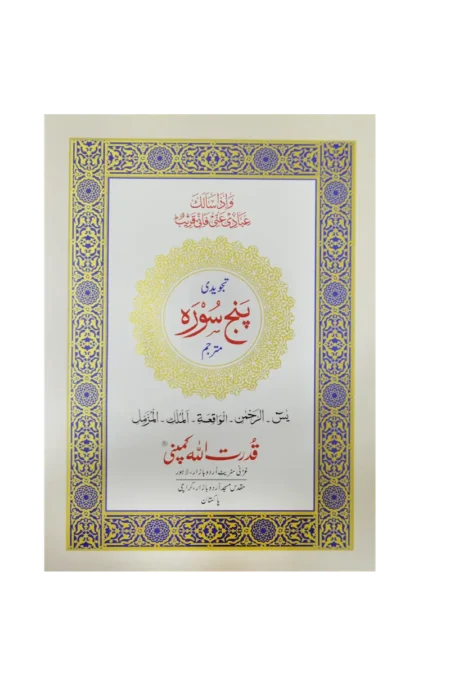 وَاِذَا سَاَلَكَ
عِبَادِیْ عَنِّیْ فَاِنِّیْ قَرِیْبٌ
تجویدی
پَنج سُوْرَه
مترجم
یٰسٓ ۔ الرَّحْمٰن ۔ الوَاقِعَة ۔ اَلمُلك ۔ المُزَمِّل
قُدرت اللہ کمپنی
غزنی سٹریٹ اُردو بازار، لاہور
مقدس مسجد اُردو بازار، کراچی
پاکستان